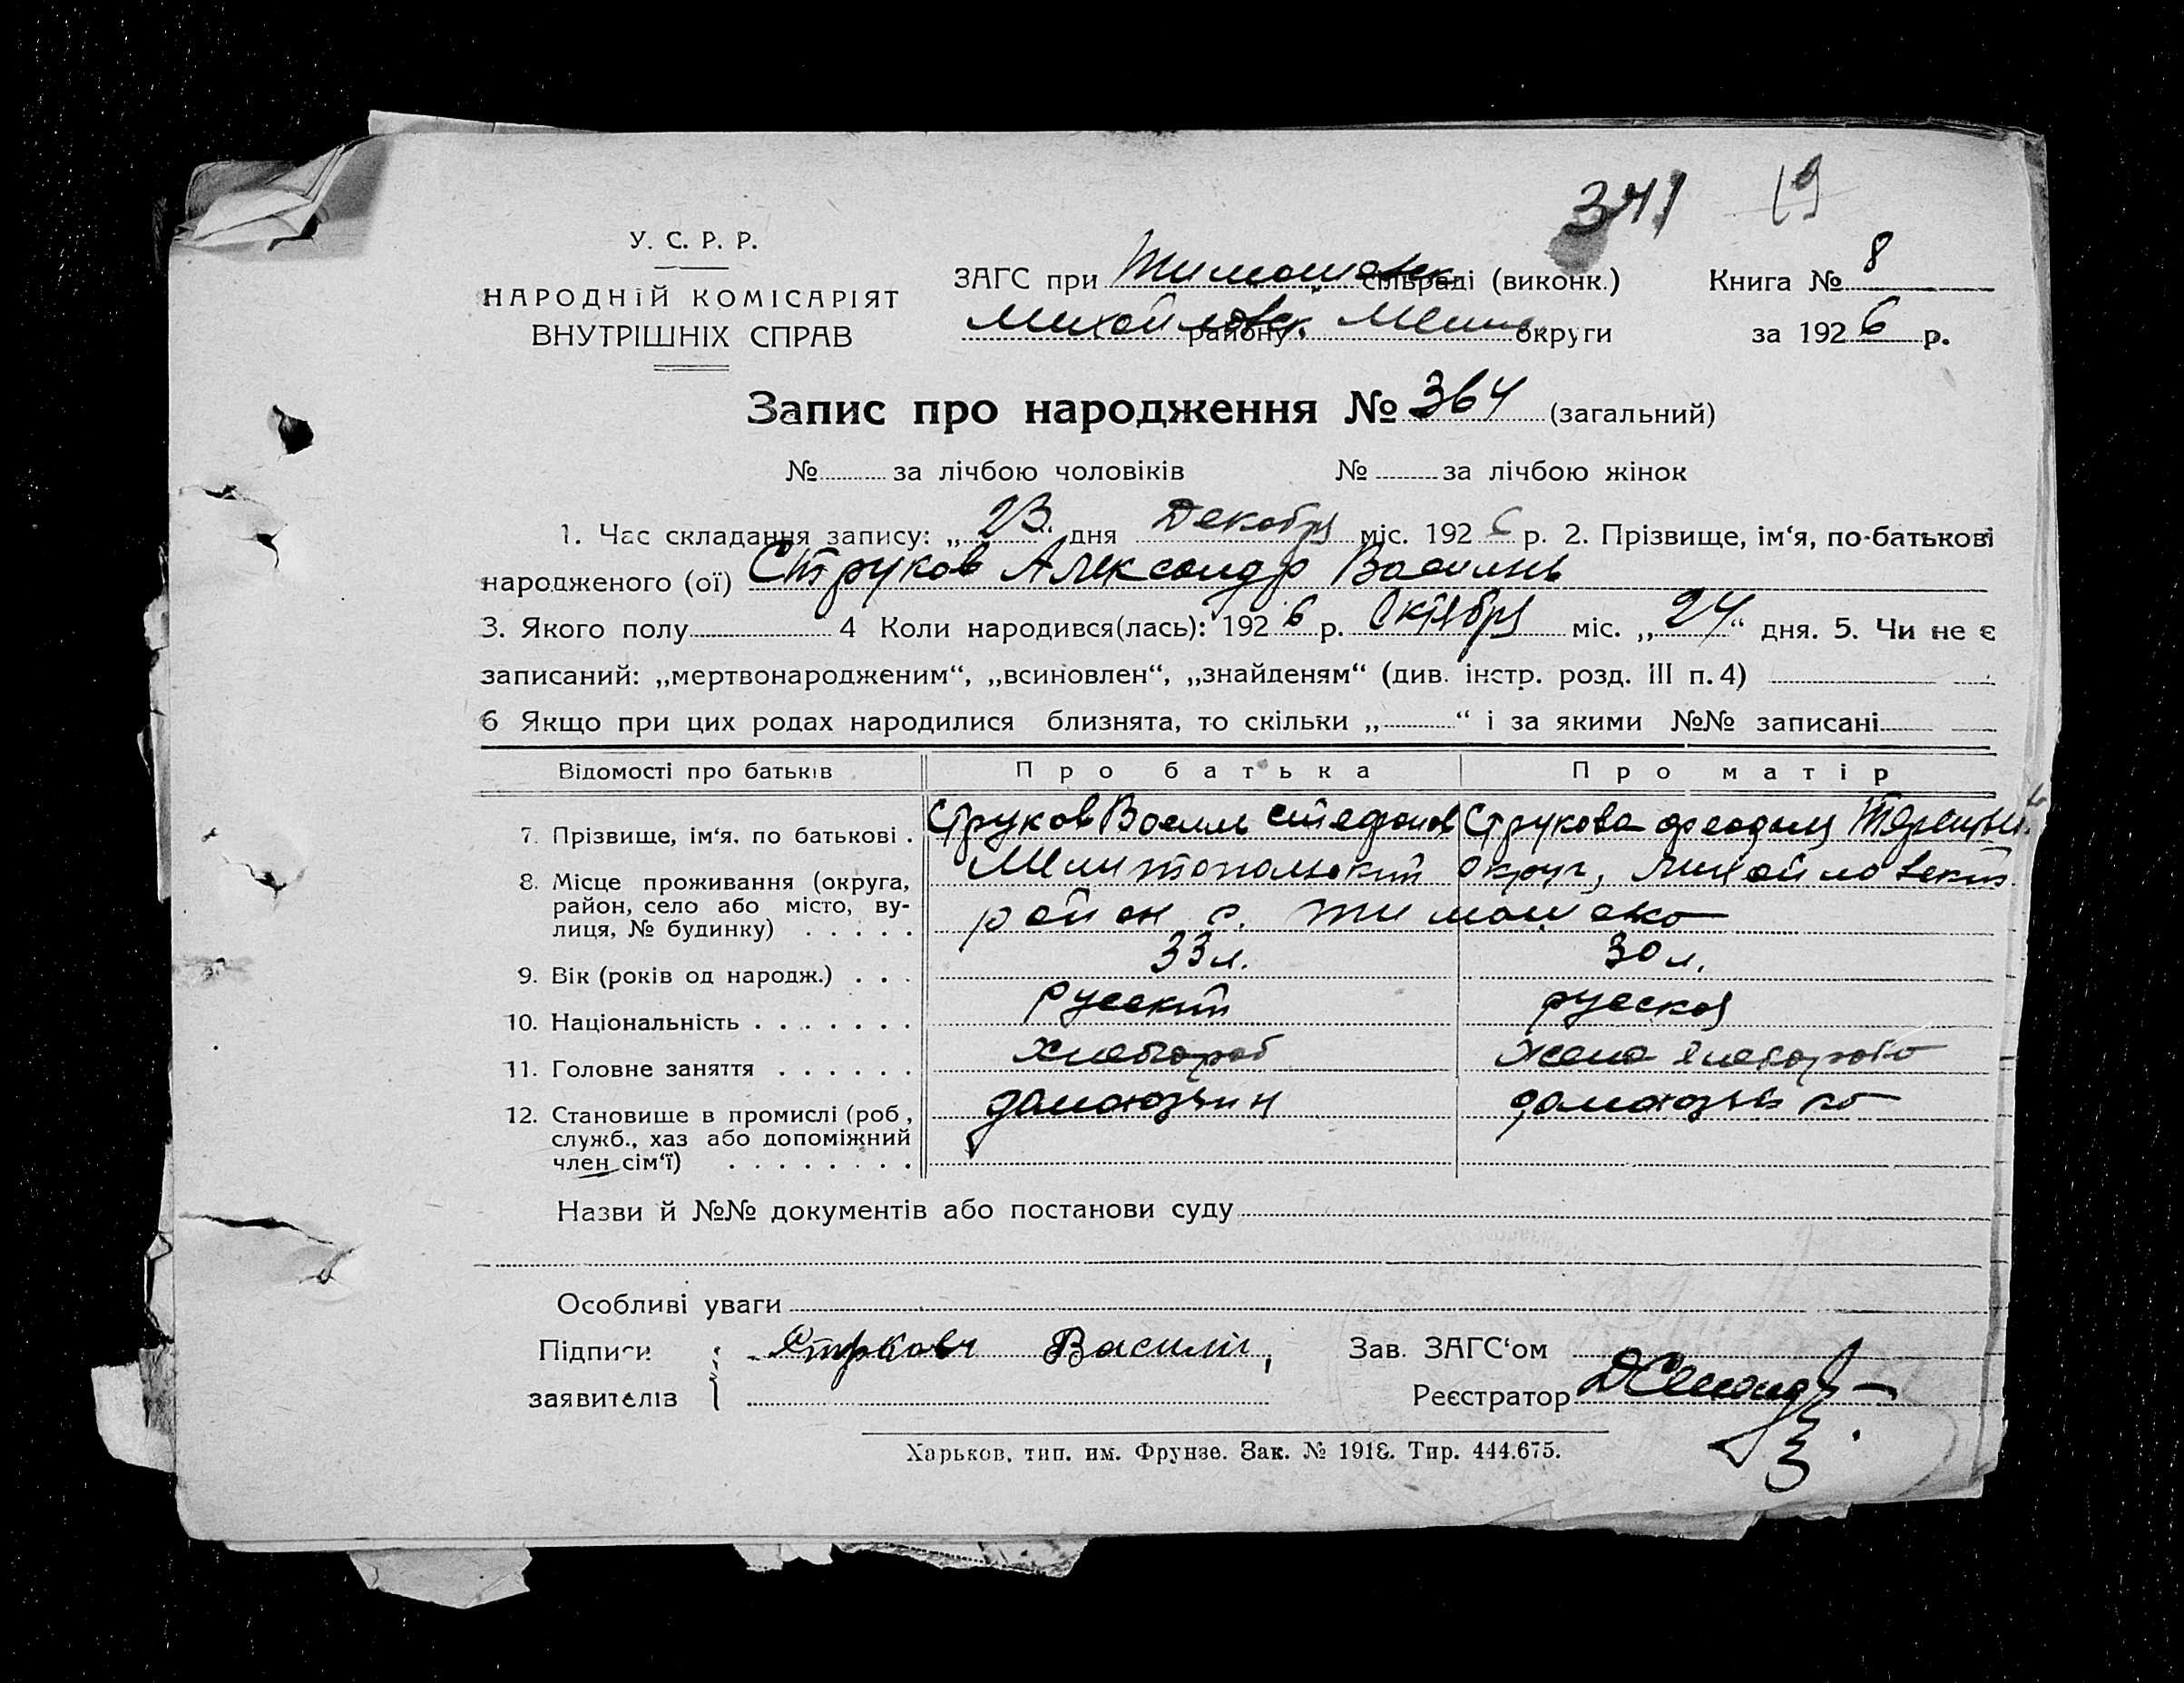 341 19
У. С. Р. Р.
НАРОДНІЙ КОМІСАРІЯТ
ВНУТРІШНІХ СПРАВ
ЗАГС при Тимошовск. сільраді (виконк.) Книга № 8
Михайловск. району Мелит. округи за 1926 р.
Запис про народження № 364 (загальний)
№ за лічбою чоловіків № за лічбою жінок
1. Час складання запису: „23" дня Декабря міс. 1926 р. 2. Прізвище, ім‘я, по-батькові
народженого (ої) Струков Александр Василь
3. Якого полу 4 Коли народився(лась): 1926 р. Октября міс. „24“ дня. 5. Чи не є
записаний: „мертвонародженим“, „всиновлен“, „знайденям“ (див. інстр. розд. III п. 4)
6 Якщо при цих родах народилися близнята, то скільки „ “ і за якими №№ записані
Відомості про батьків Про батька Про матір
7. Прізвище, ім‘я, по батькові . Струков Васил Стефанов Струкова Феодан Терентьи
8. Місце проживання (округа, район, село або місто, вулиця, № будинку) . . . . . Мелитопольский округ, Михайловский
район с. Тимошовко
9. Вік (років од народж.) . . . 33 л. 30 л.
10. Національність . . . . . . . русский русская
11. Головне заняття . . . . . . хлебороб жена хлебороба
12. Становище в промислі (роб., служб., хаз або допоміжний член сім‘ї) . . . . . . . . домохозяин домохозяйка
Назви й №№ документів або постанови суду
Особливі уваги
Підписи заявителів Струковъ Василій, Зав. ЗАГС‘ом
Реєстратор
Харьков, тип. им. Фрунзе. Зак. № 1918. Тир. 444.675.